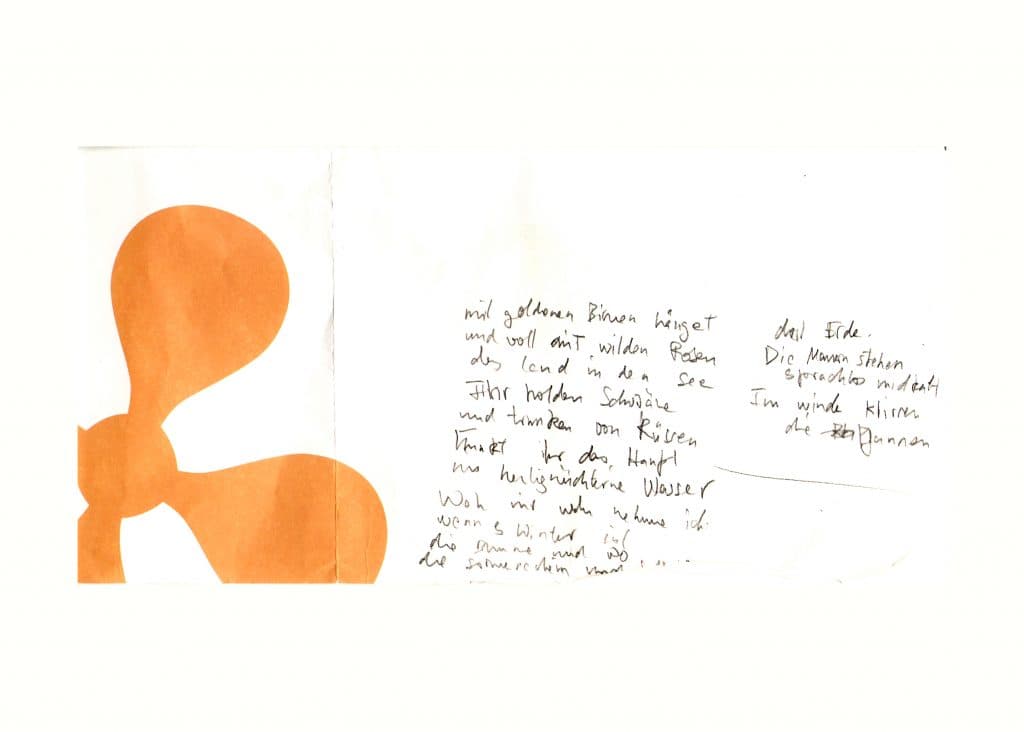 mit goldenen Birnen hänget
und voll mit wilden Rosen
das Land in den See
Ihr holden Schwäne
und trunken von Küssen
Tunkt ihr das Haupt
ins heilignüchterne Wasser
Weh mir wohn nehme ich
wenn s Winter ist
die und wo
die
Erde.
Die Mauern stehen
sprachlos und kalt
Im winde klirren
die